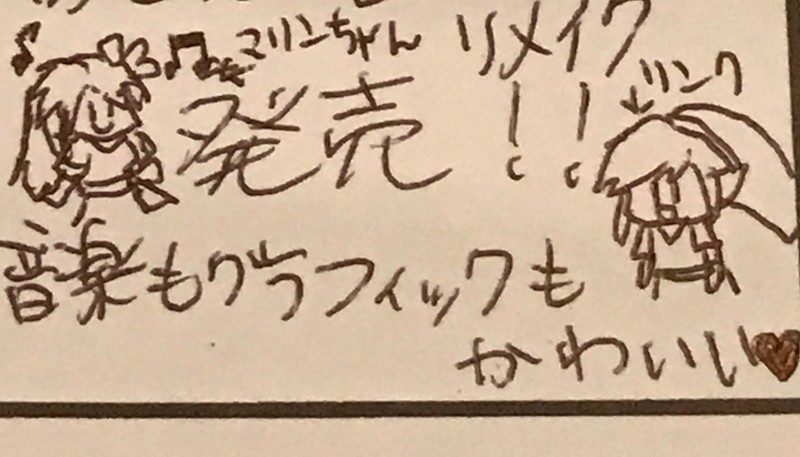 リメイク
←マリンちゃん
↓リンク
発売!!
音楽もグラフィックも
かわいい♥